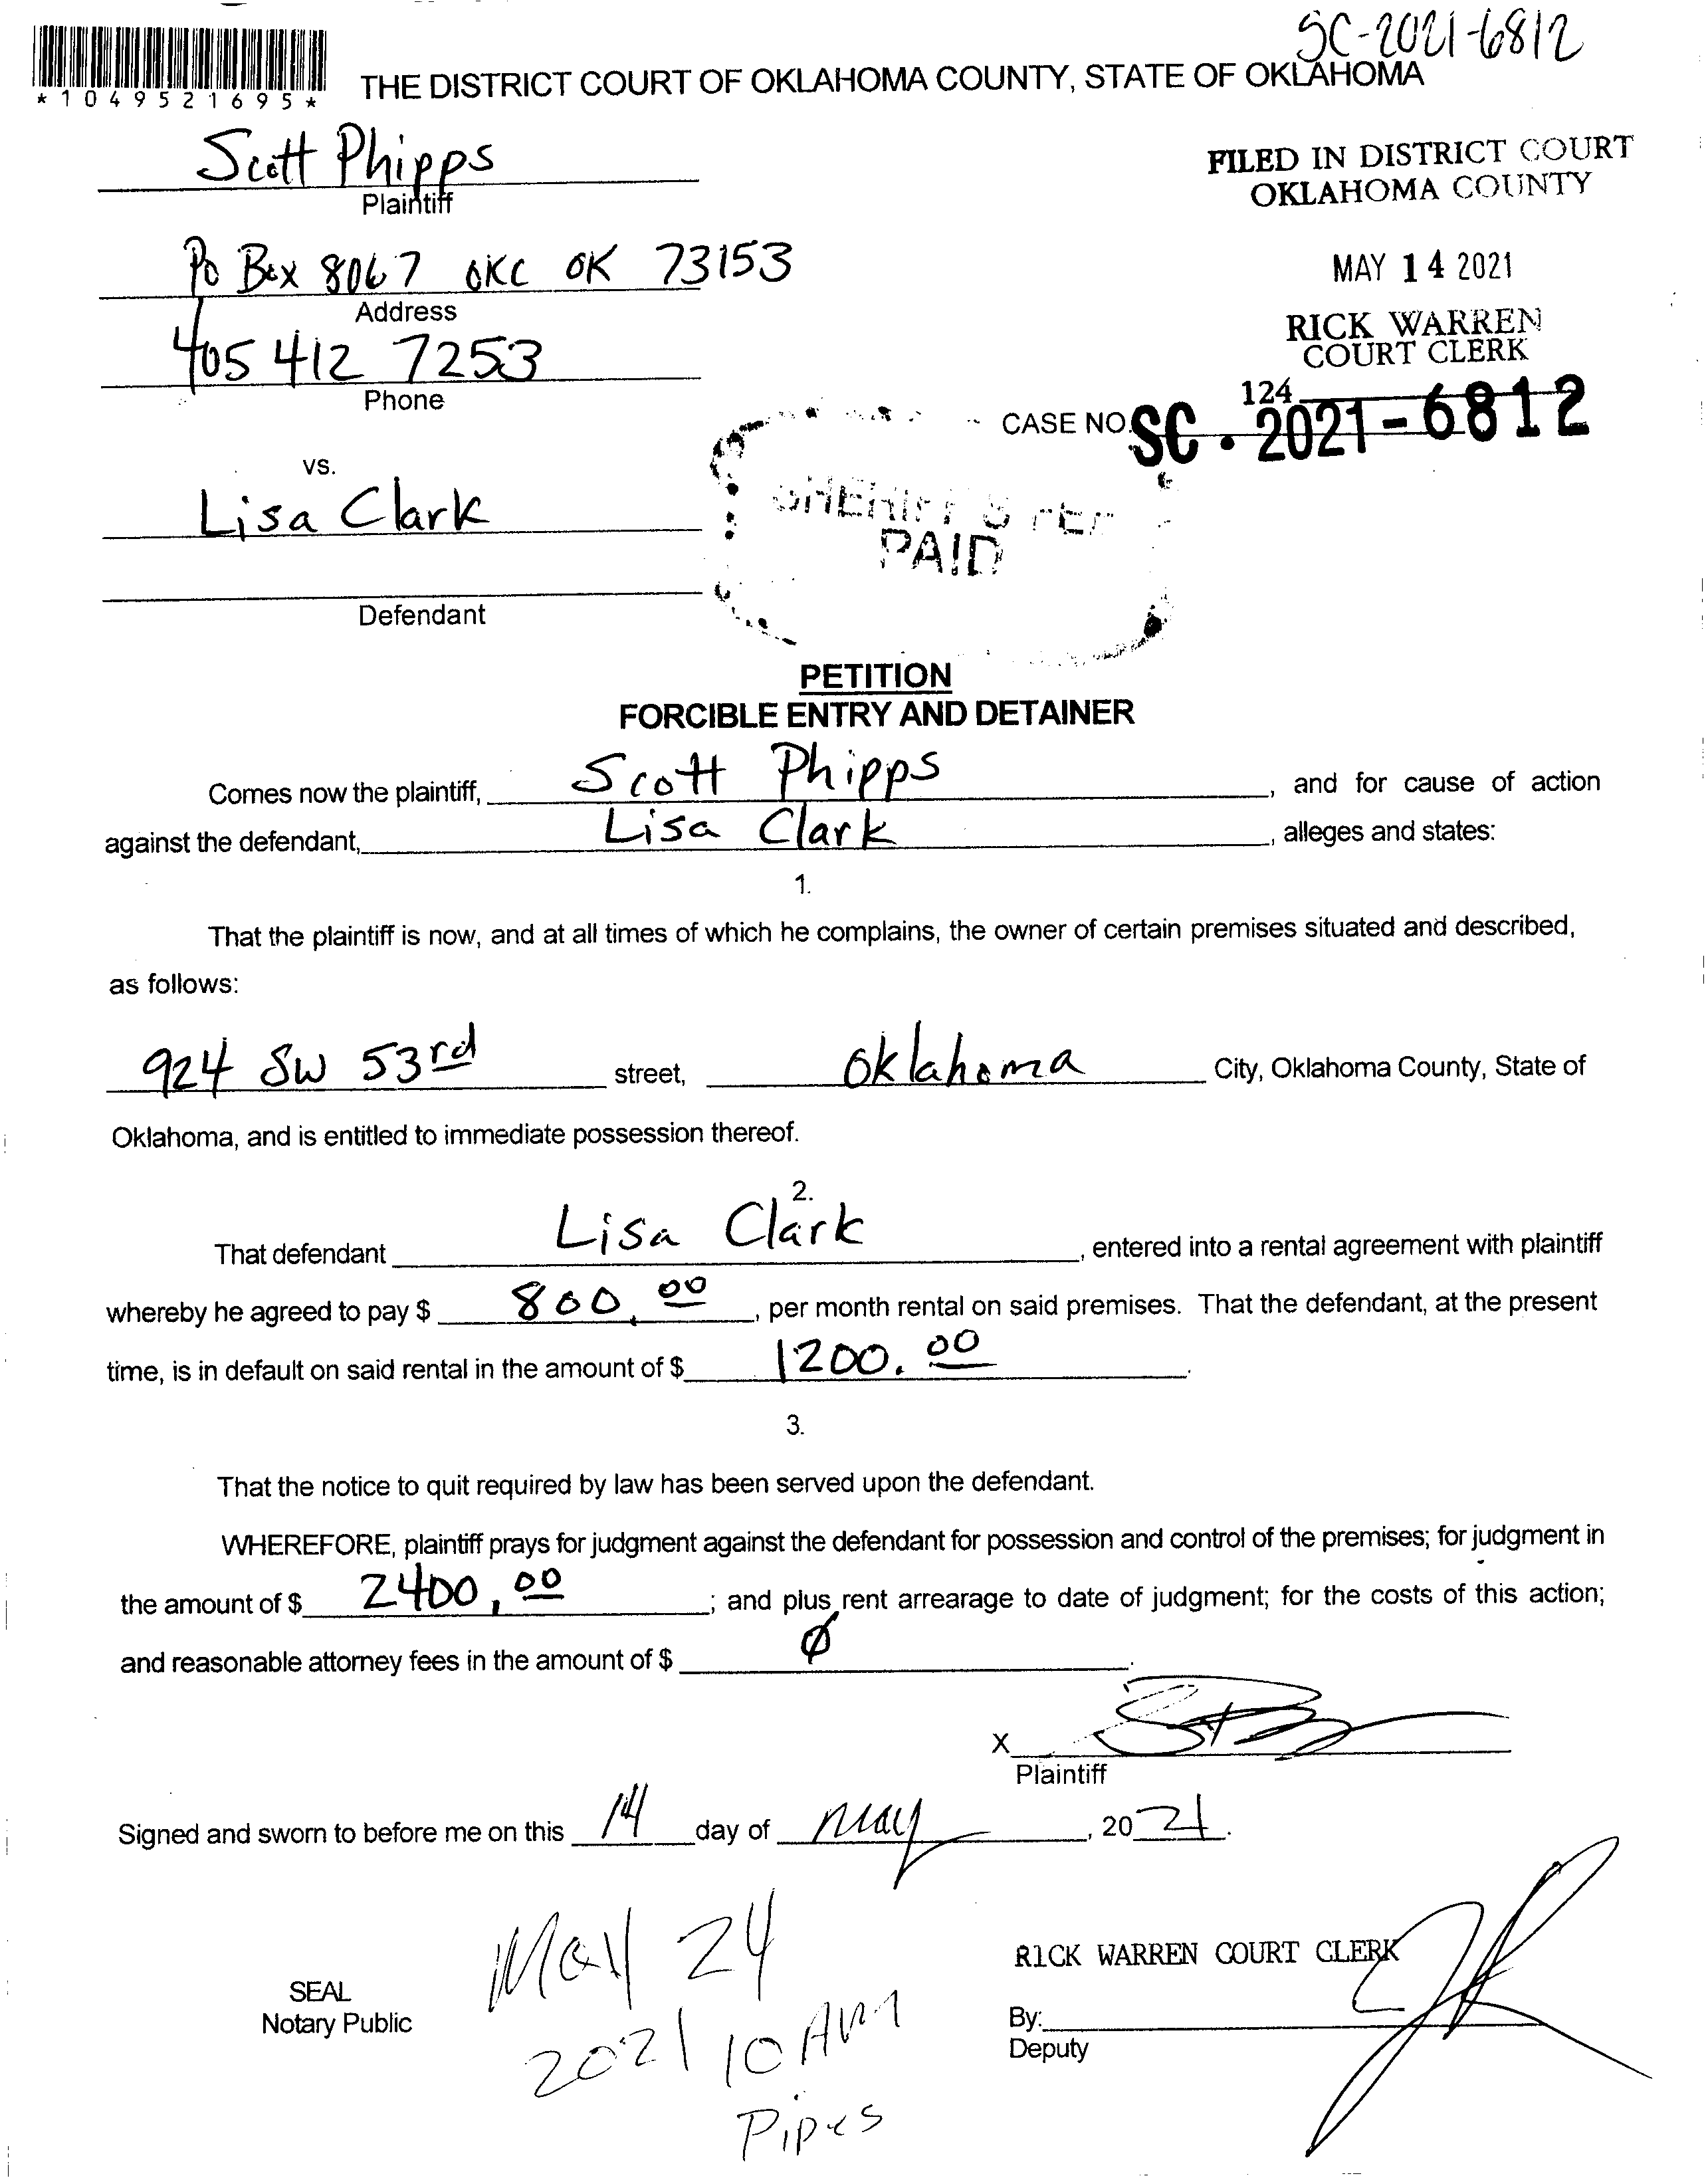 SC-2021-6812
*1049521695*
THE DISTRICT COURT OF OKLAHOMA COUNTY, STATE OF OKLAHOMA
Scott Phipps
Plaintiff
FILED IN DISTRICT COURT
OKLAHOMA COUNTY
PO Box 8067 OKC OK 73153
Address
MAY 14 2021
405 412 7253
Phone
RICK WARREN
COURT CLERK
124
CASE NO. SC • 2021-6812
vs.
Lisa Clark
SHERIFF'S FEE
PAID
Defendant
PETITION
FORCIBLE ENTRY AND DETAINER
Comes now the plaintiff, Scott Phipps, and for cause of action
against the defendant, Lisa Clark, alleges and states:
1.
That the plaintiff is now, and at all times of which he complains, the owner of certain premises situated and described,
as follows:
924 SW 53rd street, Oklahoma City, Oklahoma County, State of
Oklahoma, and is entitled to immediate possession thereof.
2.
That defendant Lisa Clark, entered into a rental agreement with plaintiff
whereby he agreed to pay $ 800.00, per month rental on said premises. That the defendant, at the present
time, is in default on said rental in the amount of $ 1200.00.
3.
That the notice to quit required by law has been served upon the defendant.
WHEREFORE, plaintiff prays for judgment against the defendant for possession and control of the premises; for judgment in
the amount of $ 2400.00; and plus rent arrearage to date of judgment; for the costs of this action;
and reasonable attorney fees in the amount of $ Ø.
X
Plaintiff
Signed and sworn to before me on this 14 day of may, 2021.
May 24
2021 10 AM
Pipes
SEAL
Notary Public
RICK WARREN COURT CLERK
By:
Deputy